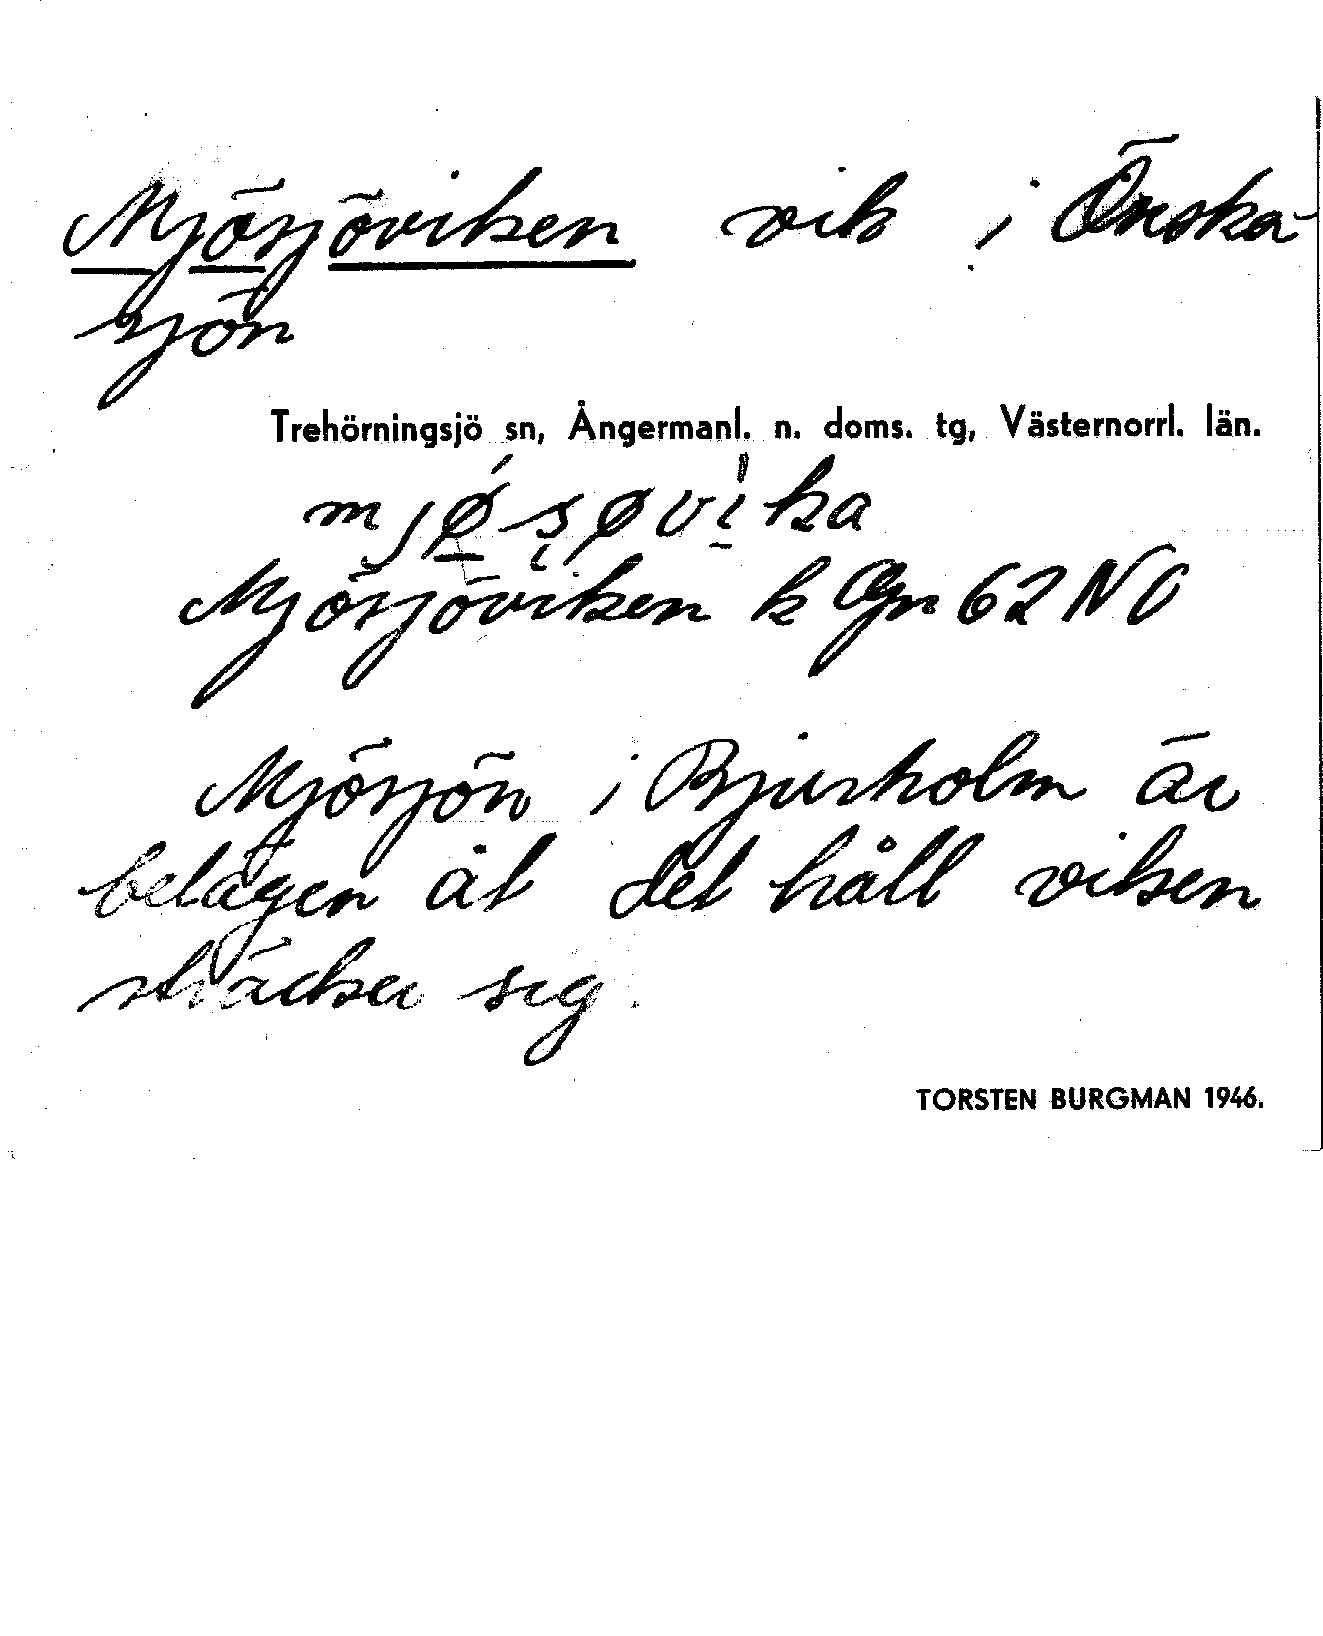 Mjösjöviken vik i Önska-
sjön
Trehörningsjö sn, Ångermanl. n. doms. tg, Västernorrl. län.
mjø̲ʂøvi̲ka
Mjösjöviken k Gn 62 NO
Mjösjön i Bjurholm är
belägen åt det håll viken
sträcker sig.
TORSTEN BURGMAN 1946.